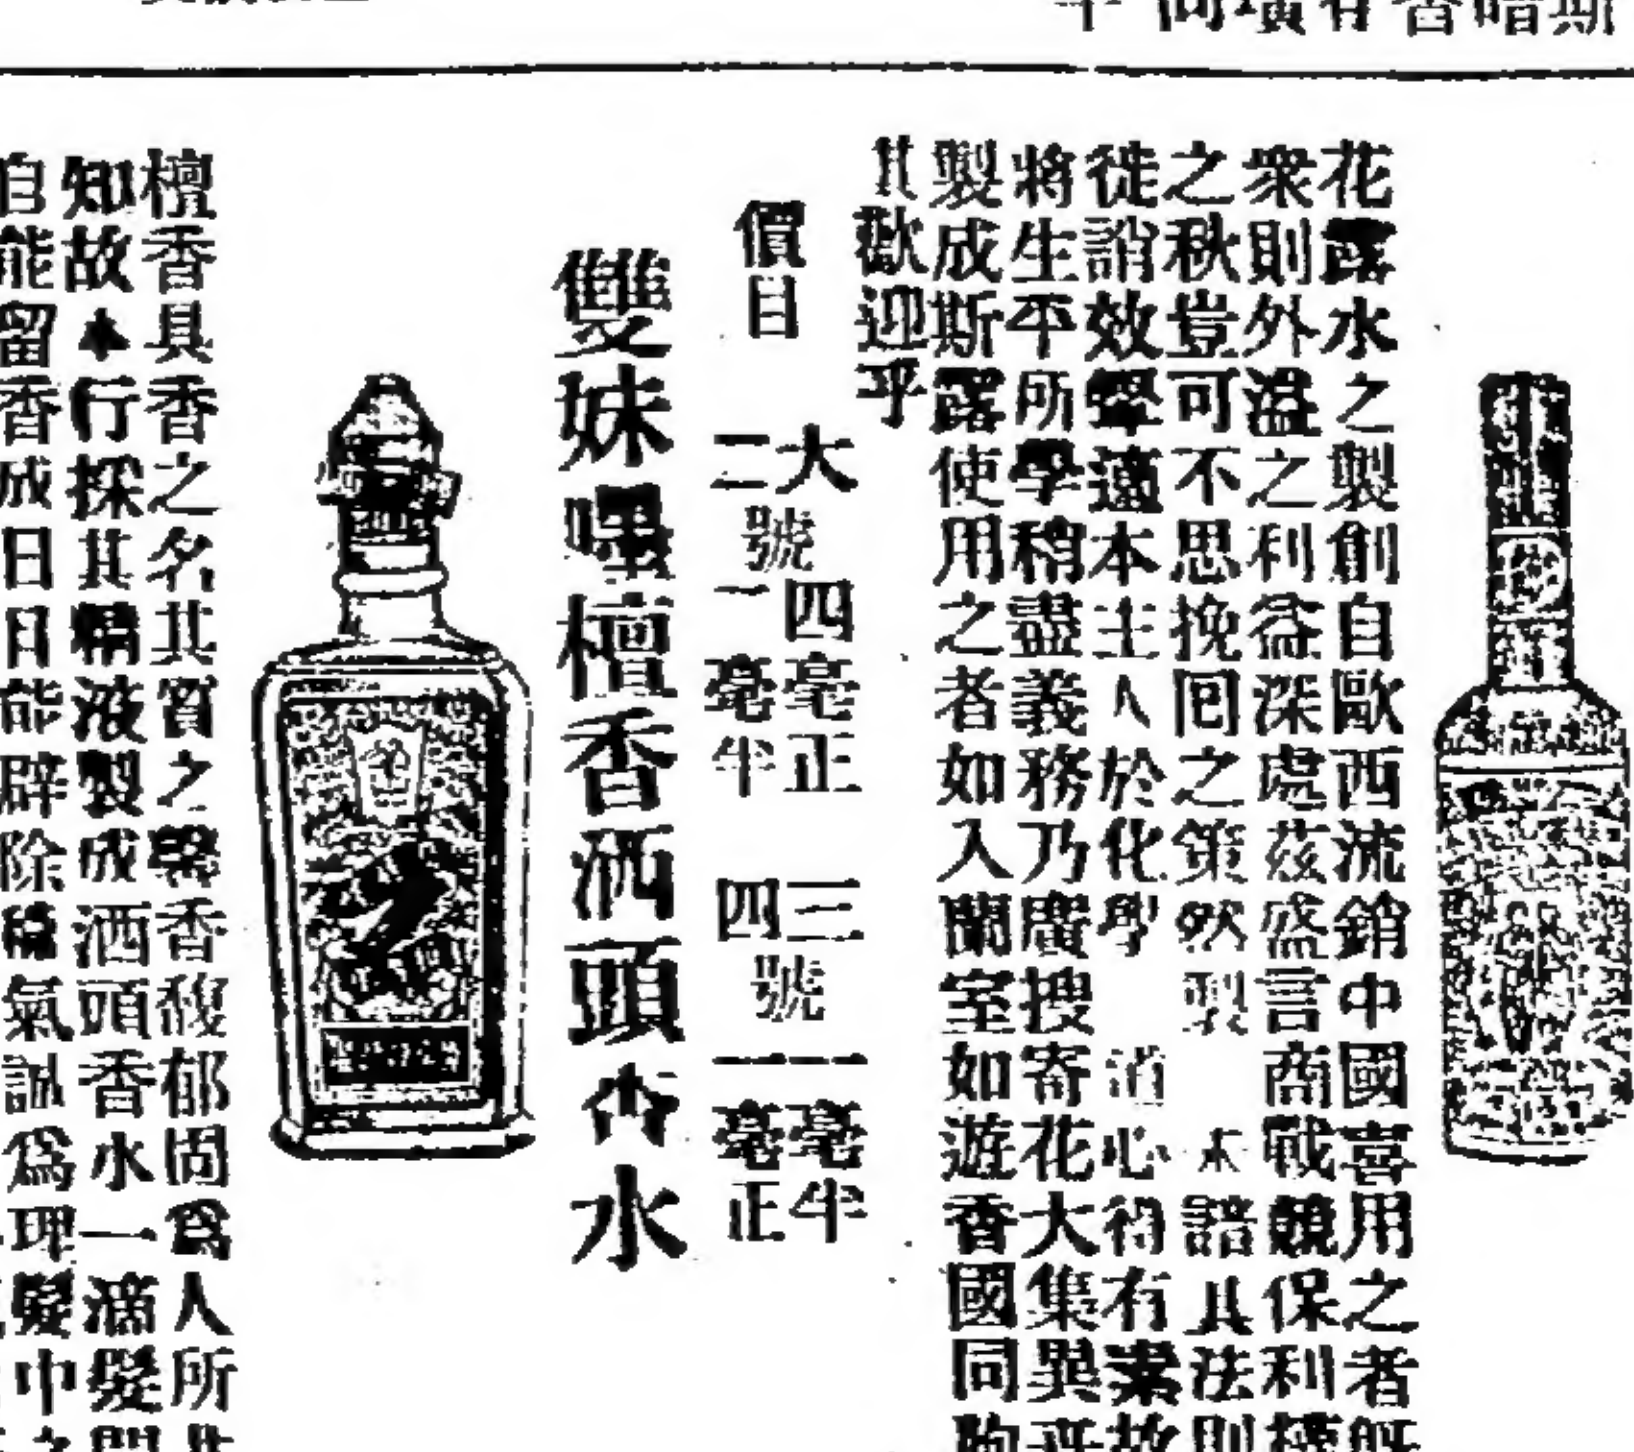 斯暗香有
花露水之製創自歐西流銷中國喜用之者
衆則外溢之利益深處茲盛言商戰競保利
之秋豈可不思挽囘之策然製 未諳其法則
徙誚效顰適本主人於化學 消心得有素故
將生平所學稍盡義務乃廣搜寄花大集異
製成斯露使用之者如入蘭室如遊香國同
其歡迎乎
價目
大 四毫正 三 一毫半
二號 一毫半 四號 一毫正
雙妹嘜檀香洒頭香水
檀香具香之名其質之馨香馥郁固爲人所
知故本行採其精液製成洒頭香水一滴髮
自能留香成日日能辟除穢氣誠爲理髮巾之